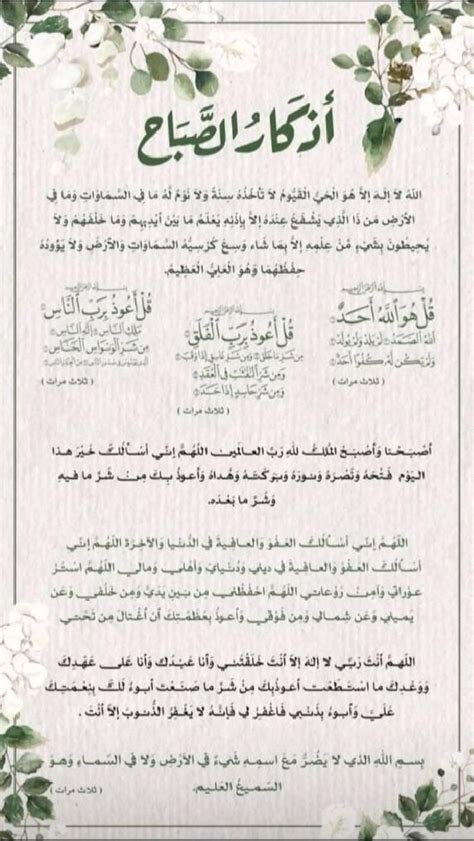 أذكار الصَّبَاح
اللهُ لاَ إِلَهَ إِلاَّ هُوَ الْحَيُّ الْقَيُّومُ لاَ تَأْخُذُهُ سِنَةٌ وَلاَ نَوْمٌ لَّهُ مَا فِي السَّمَاوَاتِ وَمَا فِي
الأَرْضِ مَن ذَا الَّذِي يَشْفَعُ عِنْدَهُ إِلاَّ بِإِذْنِهِ يَعْلَمُ مَا بَيْنَ أَيْدِيهِمْ وَمَا خَلْفَهُمْ وَلاَ
يُحِيطُونَ بِشَيْءٍ مِّنْ عِلْمِهِ إِلاَّ بِمَا شَاء وَسِعَ كُرْسِيُّهُ السَّمَاوَاتِ وَالأَرْضَ وَلاَ يَؤُودُهُ
حِفْظُهُمَا وَهُوَ الْعَلِيُّ الْعَظِيمُ.
قُلْ هُوَ اللَّهُ أَحَدٌ
اللَّهُ الصَّمَدُ لَمْ يَلِدْ وَلَمْ يُولَدْ
وَلَمْ يَكُن لَّهُ كُفُوًا أَحَدٌ
( ثلاث مرات )
قُلْ أَعُوذُ بِرَبِّ الْفَلَقِ
مِن شَرِّ مَا خَلَقَ وَمِن شَرِّ غَاسِقٍ إِذَا وَقَبَ
وَمِن شَرِّ النَّفَّاثَاتِ فِي الْعُقَدِ
وَمِن شَرِّ حَاسِدٍ إِذَا حَسَدَ
( ثلاث مرات )
قُلْ أَعُوذُ بِرَبِّ النَّاسِ
مَلِكِ النَّاسِ إِلَهِ النَّاسِ
مِن شَرِّ الْوَسْوَاسِ الْخَنَّاسِ
( ثلاث مرات )
أَصْبَحْنا وَأَصْبَحَ المُلكُ للهِ رَبِّ العالَمين اللّهُمَّ إِنِّي أسْأَلُكَ خَيْرَ هذا
اليَوْم فَتْحَهُ وَنَصْرَهُ وَنورَهُ وَبَرَكَتَهُ وَهُداهُ وَأَعوذُ بِكَ مِنْ شَرِّ ما فيهِ
وَشَرِّ ما بَعْدَه.
اللّهُمَّ إِنِّي أسْأَلُكَ العَفْوَ وَالعافِيةَ في الدُّنْيا وَالآخِرَة اللّهُمَّ إِنِّي
أسْأَلُكَ العَفْوَ وَالعافِيةَ في ديني وَدُنْيايَ وَأهْلي وَمالي اللّهُمَّ اسْتُرْ
عَوْراتي وَآمِنْ رَوْعاتي اللّهُمَّ احْفَظْني مِن بَينِ يَدَيَّ وَمِن خَلْفي وَعَن
يَميني وَعَن شِمالي وَمِن فَوْقي وَأَعوذُ بِعَظَمَتِكَ أَن أُغْتالَ مِن تَحْتي
اللّهمَّ أَنْتَ رَبِّي لا إلهَ إلاّ أَنْتَ خَلَقْتَني وَأَنا عَبْدُكَ وَأَنا عَلى عَهْدِكَ
وَوَعْدِكَ ما اسْتَطَعْت أَعوذُبِكَ مِنْ شَرِّ ما صَنَعْت أَبوءُ لَكَ بِنِعْمَتِكَ
عَلَيَّ وَأَبوءُ بِذَنْبي فَاغْفِرْ لي فَإِنَّهُ لا يَغْفِرُ الذُّنوبَ إِلاّ أَنْتَ .
بِسمِ اللهِ الذي لا يَضُرُّ مَعَ اسمِهِ شَيءٌ في الأرْضِ وَلا في السّماءِ وَهوَ
السّميعُ العَليم. ( ثلاث مرات )